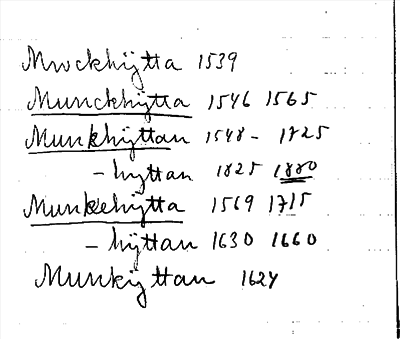 Mwckhÿtta 1539
Munckhÿtta 1546 1565
Munkhÿttan 1548 - 1725
- hyttan 1825 1880
Munkehÿtta 1569 1715
- hÿttan 1630 1660
Munkÿttan 1624